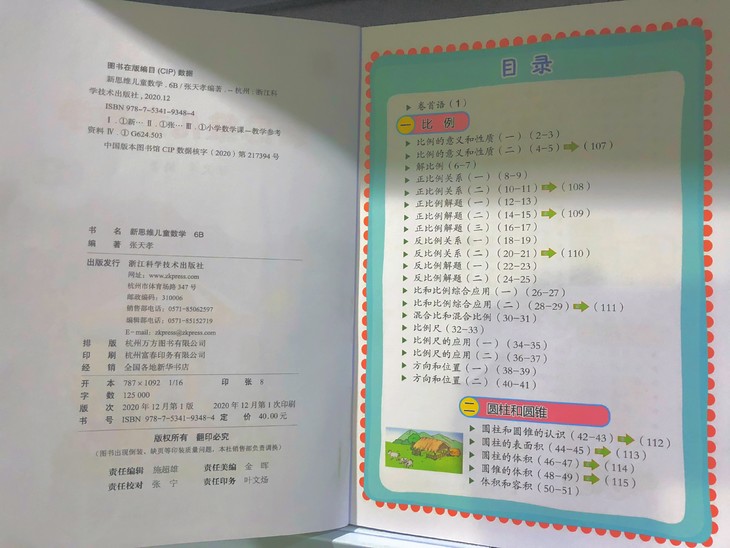 图书在版编目(CIP)数据
新思维儿童数学.6B/张天孝编著.—杭州:浙江科
学技术出版社,2020.12
ISBN 978-7-5341-9348-4
Ⅰ.①新… Ⅱ.①张… Ⅲ.①小学数学课—教学参考
资料 Ⅳ.①G624.503
中国版本图书馆CIP数据核字(2020)第217394号
书 名 新思维儿童数学 6B
编 著 张天孝
出版发行 浙江科学技术出版社
网址:www.zkpress.com
杭州市体育场路347号
邮政编码:310006
销售部电话:0571-85062597
编辑部电话:0571-85152719
E-mail:zkpress@zkpress.com
排 版 杭州万方图书有限公司
印 刷 杭州富春印务有限公司
经 销 全国各地新华书店
开 本 787×1092 1/16 印 张 8
字 数 125 000
版 次 2020年12月第1版 2020年12月第1次印刷
书 号 ISBN 978-7-5341-9348-4 定 价 40.00元
版权所有 翻印必究
(图书出现倒装、缺页等印装质量问题,本社销售部负责调换)
责任编辑 施超雄 责任美编 金晖
责任校对 张宁 责任印务 叶文炀
目录
卷首语(1)
一 比例
比例的意义和性质(一)(2-3)
比例的意义和性质(二)(4-5)➡(107)
解比例(6-7)
正比例关系(一)(8-9)
正比例关系(二)(10-11)➡(108)
正比例解题(一)(12-13)
正比例解题(二)(14-15)➡(109)
正比例解题(三)(16-17)
反比例关系(一)(18-19)
反比例关系(二)(20-21)➡(110)
反比例解题(一)(22-23)
反比例解题(二)(24-25)
比和比例综合应用(一)(26-27)
比和比例综合应用(二)(28-29)➡(111)
混合比和混合比例(30-31)
比例尺(32-33)
比例尺的应用(一)(34-35)
比例尺的应用(二)(36-37)
方向和位置(一)(38-39)
方向和位置(二)(40-41)
二 圆柱和圆锥
圆柱和圆锥的认识(42-43)➡(112)
圆柱的表面积(44-45)➡(113)
圆柱的体积(46-47)➡(114)
圆锥的体积(48-49)➡(115)
体积和容积(50-51)